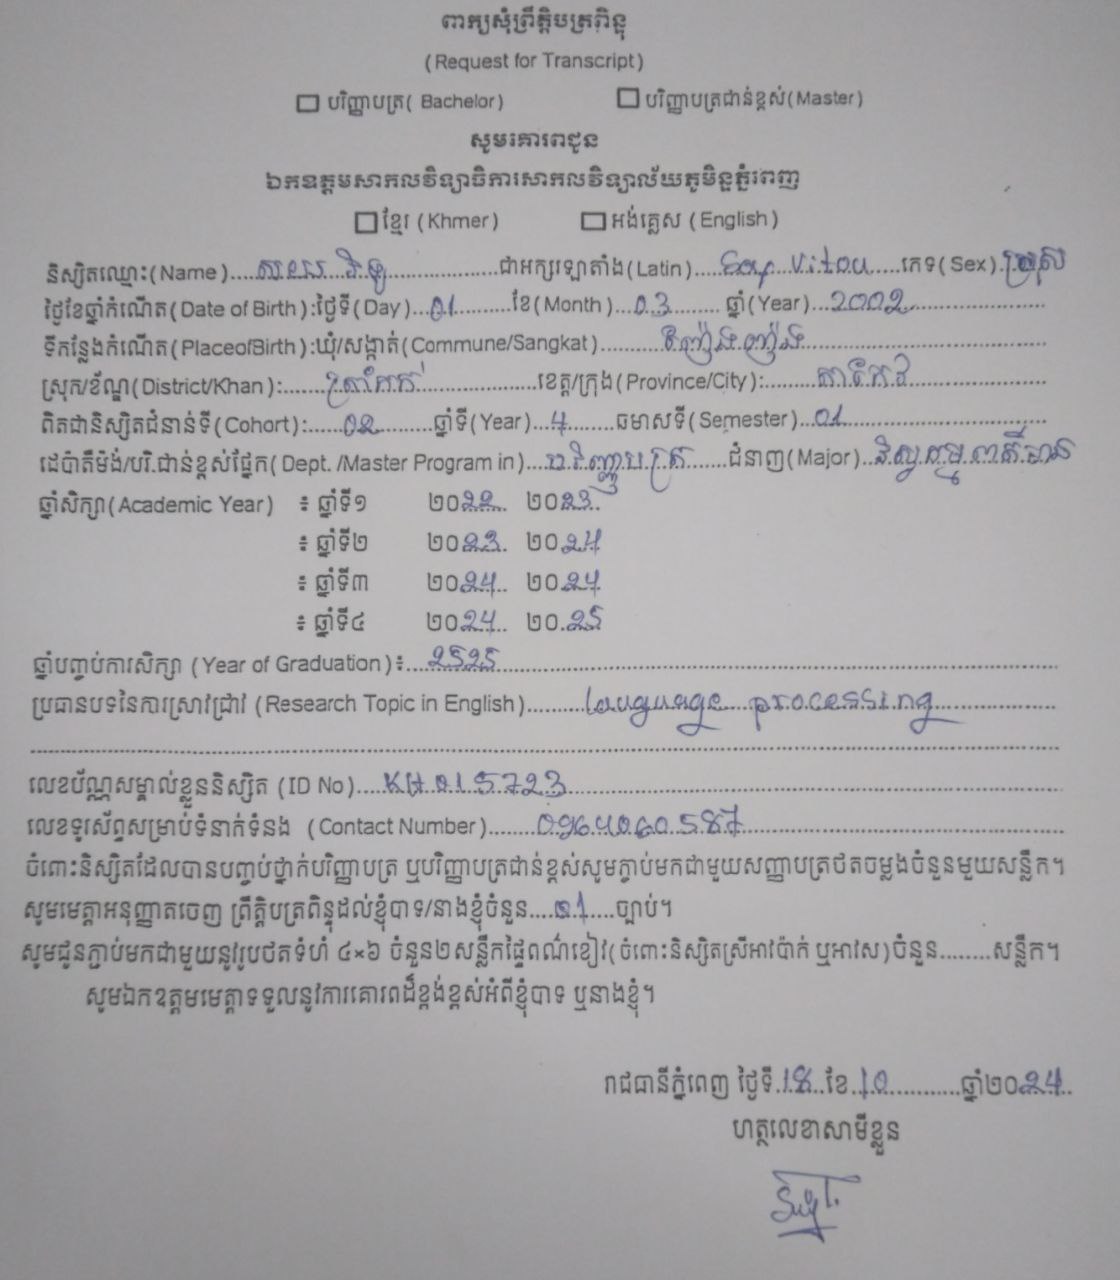 ពាក្យសុំព្រឹត្តិបត្រពិន្ទុ
(Request for Transcript)
បរិញ្ញាបត្រ( Bachelor) បរិញ្ញាបត្រជាន់ខ្ពស់(Master)
សូមគោរពជូន
ឯកឧត្តមសាកលវិទ្យាធិការសាកលវិទ្យាល័យភូមិន្ទភ្នំពេញ
ខ្មែរ (Khmer) អង់គ្លេស (English)
និស្សិតឈ្មោះ(Name)....................ជាអក្សរឡាតាំង(Latin)....Say Vitou.....ភេទ(Sex).ប្រុស
ថ្ងៃខែឆ្នាំកំណើត(Date of Birth):ថ្ងៃទី(Day)...01..........ខែ(Month)...03.........ឆ្នាំ(Year)...2002......................
ទីកន្លែងកំណើត(PlaceofBirth):ឃុំ/សង្កាត់(Commune/Sangkat)..........ញ៉ែងញ៉ង........................
ស្រុក/ខ័ណ្ឌ(District/Khan):......ត្រាំកក់....................ខេត្ត/ក្រុង(Province/City):.........តាកែវ......................
ពិតជានិស្សិតជំនាន់ទី(Cohort):......02.........ឆ្នាំទី(Year)...4........ឆមាសទី(Semester)....01.............................
ដេប៉ាតឺម៉ង់/បរិ.ជាន់ខ្ពស់ផ្នែក(Dept. /Master Program in)....បរិញ្ញាបត្រ.......ជំនាញ(Major)..វិស្វកម្មព័ត៌មាន
ឆ្នាំសិក្សា(Academic Year) ៖ ឆ្នាំទី១ ២០22. ២០23.
៖ ឆ្នាំទី២ ២០23. ២០24
៖ ឆ្នាំទី៣ ២០24.. ២០24
៖ ឆ្នាំទី៤ ២០24.. ២០.25
ឆ្នាំបញ្ចប់ការសិក្សា (Year of Graduation)៖....2525..............................
ប្រធានបទនៃការស្រាវជ្រាវ (Research Topic in English)..........language processing....................
លេខប័ណ្ណសម្គាល់ខ្លួននិស្សិត (ID No)....KH015723..............................
លេខទូរស័ព្ទសម្រាប់ទំនាក់ទំនង (Contact Number)........0964060587..............................
ចំពោះនិស្សិតដែលបានបញ្ចប់ថ្នាក់បរិញ្ញាបត្រ ឬបរិញ្ញាបត្រជាន់ខ្ពស់សូមភ្ជាប់មកជាមួយសញ្ញាបត្រថតចម្លងចំនួនមួយសន្លឹក។
សូមមេត្តាអនុញ្ញាតចេញ ព្រឹត្តិបត្រពិន្ទុដល់ខ្ញុំបាទ/នាងខ្ញុំចំនួន....01.....ច្បាប់។
សូមជូនភ្ជាប់មកជាមួយនូវរូបថតទំហំ ៤×៦ ចំនួន២សន្លឹកផ្ទៃពណ៌ខៀវ(ចំពោះនិស្សិតស្រីអាវប៉ាក់ ឬអាវស)ចំនួន........សន្លឹក។
សូមឯកឧត្តមមេត្តាទទួលនូវការគោរពដ៏ខ្ពង់ខ្ពស់អំពីខ្ញុំបាទ ឬនាងខ្ញុំ។
រាជធានីភ្នំពេញ ថ្ងៃទី.18..ខែ.10............ឆ្នាំ២០24..
ហត្ថលេខាសាមីខ្លួន